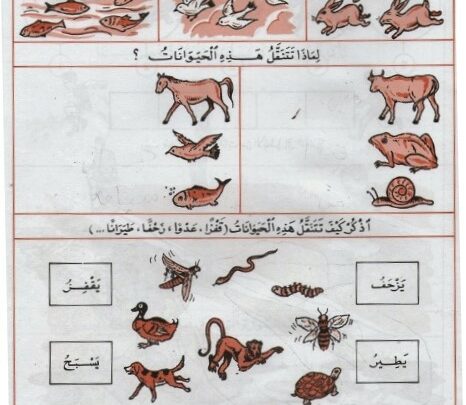 لِمَاذَا تَتَنَقَّلُ هَـذِهِ الْحَيَوَانَاتُ ؟
اُذْكُرْ كَيْفَ تَتَنَقَّلُ هَذِهِ الْحَيَوَانَاتُ (قَفْزًا، عَدْوًا، زَحْفًا، طَيَرَانًا ...)
يَزْحَفُ
يَقْفِزُ
يَطِيرُ
يَسْبَحُ